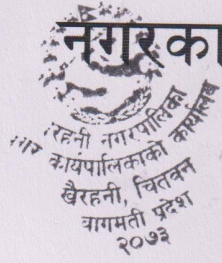 नगरका
रहनी नगरपालिका
नगर कार्यपालिकाको कार्यालय
खैरहनी, चितवन
बागमती प्रदेश
२०७३